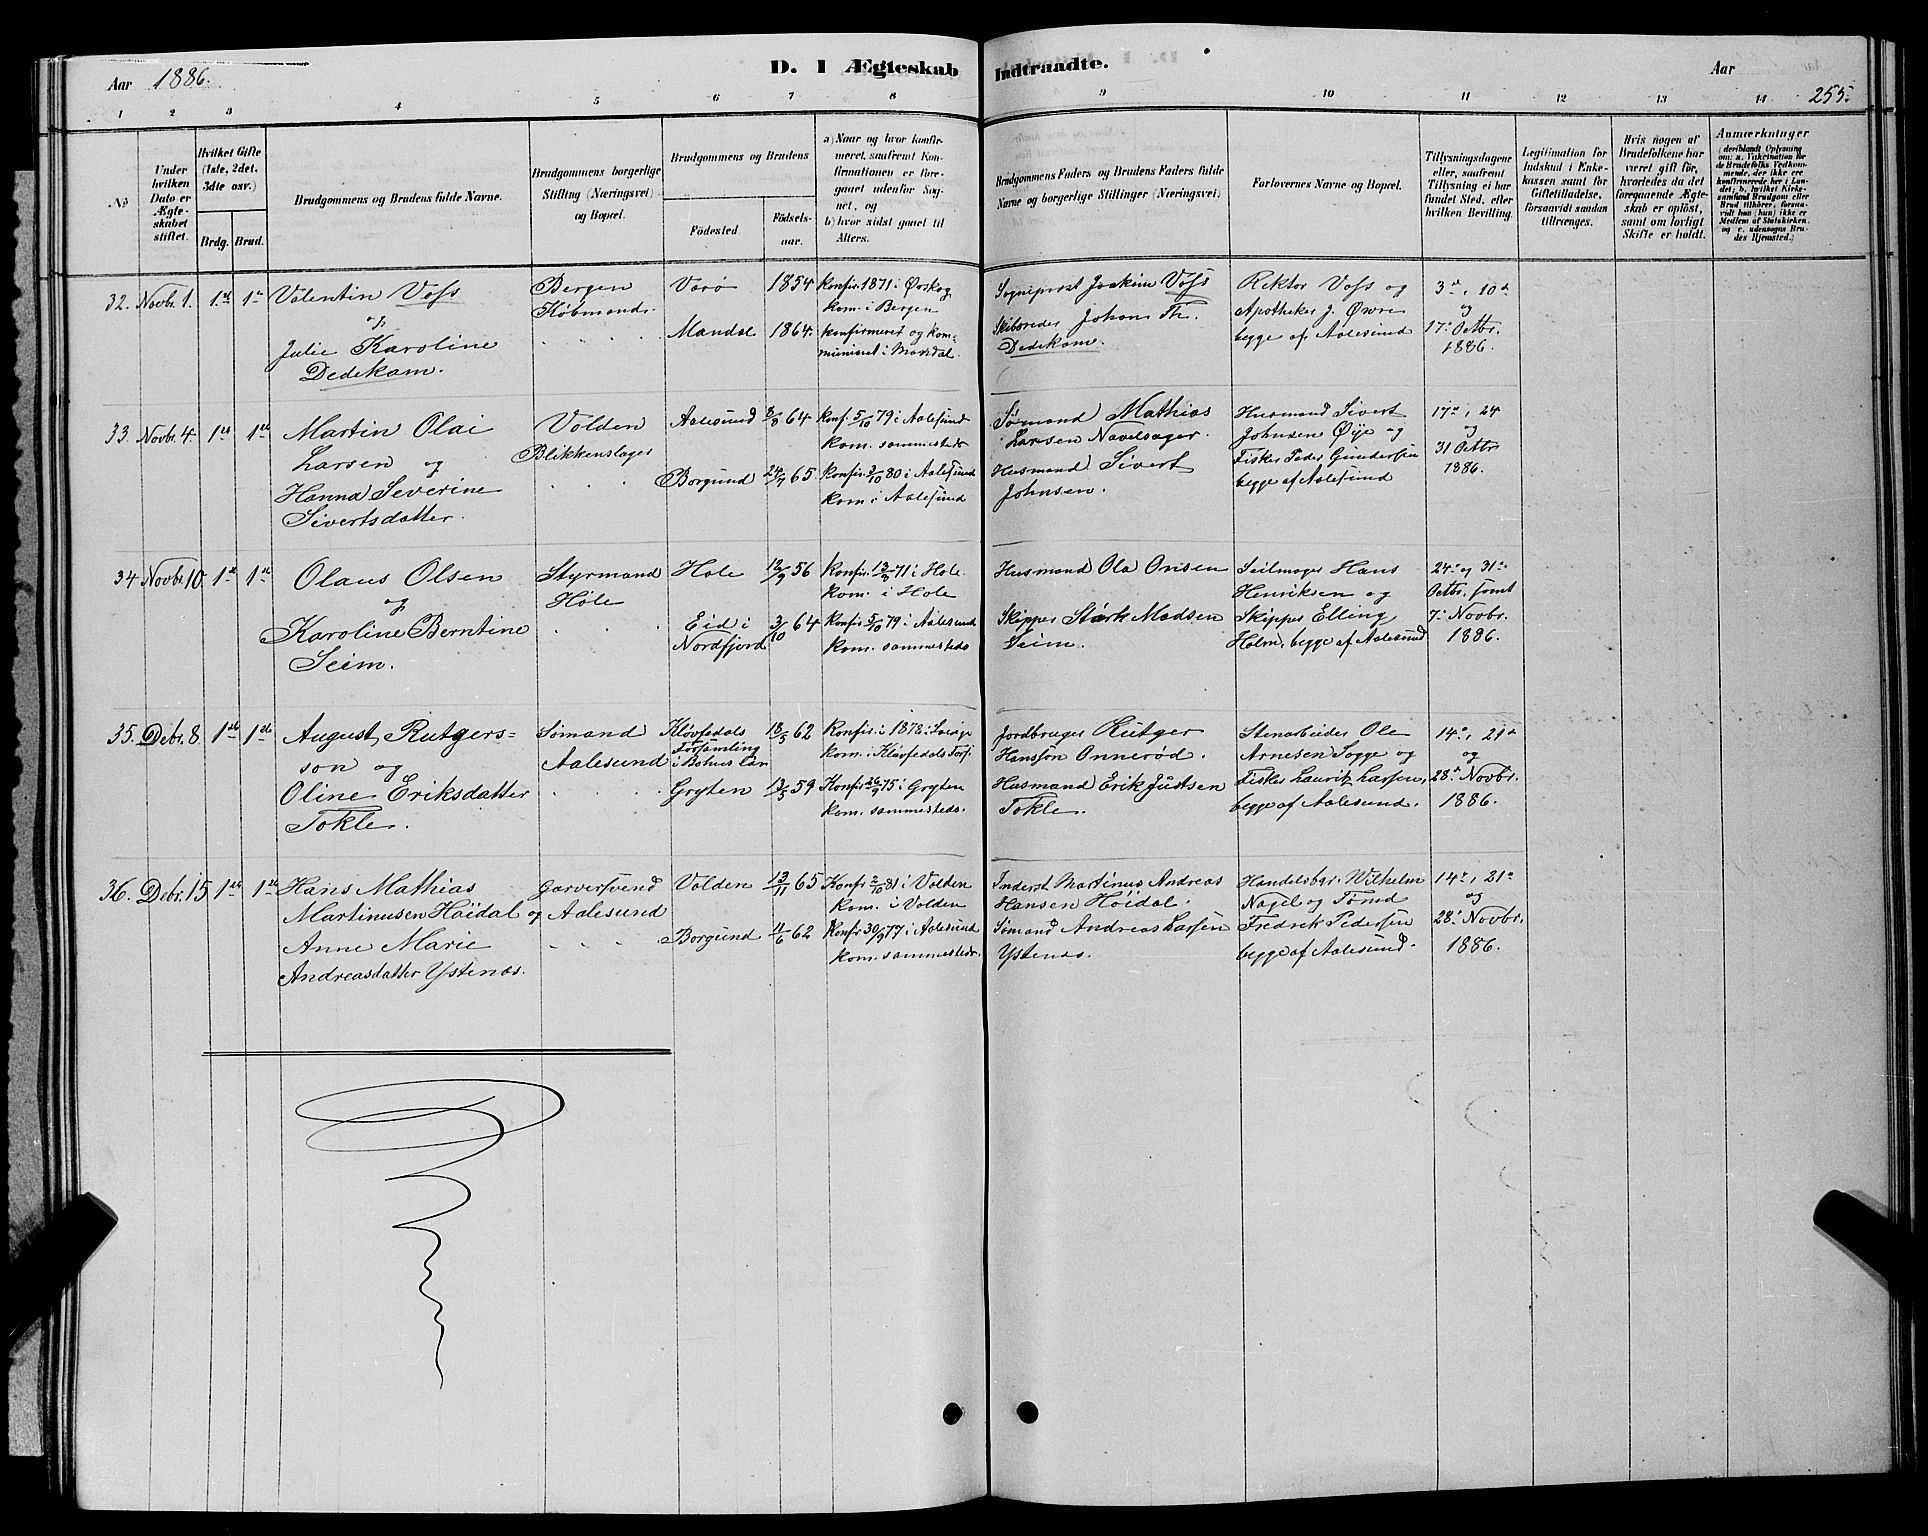 Aar 1886.
D. I Ægteskab Indtraadte.
Aar
255.
1 2 3 4 5 6 7 8 9 10 11 12 13 14
No
Under hvilken Dato er Ægteskabet stiftet.
Hvilket Gifte (1ste, 2det, 3dte osv.)
Brdg. Brud.
Brudgommens og Brudens fulde Navne.
Brudgommens borgerlige Stilling (Næringsvei) og Bopæl.
Brudgommens og Brudens
Födested.
Födselsaar.
a) Naar og hvor konfirmeret, saafremt Konfirmationen er foregaaet udenfor Sognet, og
b) hvor sidst gaaet til Alters.
Brudgommens Faders og Brudens Faders fulde Navne og borgerlige Stillinger (Næringsvei)
Forlovernes Navne og Bopæl.
Tillysningsdagene eller, saafremt Tillysning ei har fundet Sted, efter hvilken Bevilling.
Legitimation for Indskud i Enkekassen samt for Giftetilladelse, forsaavidt saadan tiltrænges.
Hvis nogen af Brudefolkene har været gift før, hvorledes da det foregaaende Ægteskab er oplöst, samt om lovligt Skifte er holdt.
Anmærkninger (deriblandt Oplysning om: a. Vakcination for de Brudefolks Vedkommende, der ikke ere konfirmerede her i Landet; b. hvilket Kirkesamfund Brudgom eller Brud tilhører, forsaavidt han (hun) ikke er Medlem af Statskirken, og c. udensogns Brudes Hjemsted.)
32. Novbr. 1. 1ste 1ste Valentin Voss
og
Julie Karoline
Dedekam.
Bergen
Kjøbmand.
Varø 1854
Mandal 1864.
Konfir. 1871 i Ørskog
kom. i Bergen
konfirmeret og kommunieret i
Sogneprest Joakim Voss
Skibsreder Johan Th.
Dedekam.
Rektor Voss og
Apotheker J. Øwre
begge af Aalesund
3die, 10de
og
17. Octbr.
1886.
33. Novbr. 4. 1ste 1ste Martin Olai
Larsen og
Hanna Severine
Sivertsdatter.
Volden
Blikkenslager
Aalesund 8/8 64
Borgund 24/7 65.
konf. 5/10 79 i Aalesund
kom. sammesteds
Konfir. 3/10 80 i Aalesund
kom. i Aalesund
Sømand Mathias
Larsen Navelsager.
Husmand Sivert
Johnsen.
Husmand Sivert
Johnsen Øye og
Fisker Peder Gundersen
begge af Aalesund
17de, 24
og
31 Octbr
1886.
34 Novbr. 10. 1ste 1ste Olaus Olsen
og
Karoline Berntine
Seim.
Styrmand
Hole
Hole 12/9 56
Eid i
Nordfjord 3/10 64
Konfir. 13/9 71 i Hole
kom. i Hole
Konfir. 5/10 79 i Aalesund
kom. sammesteds
Husmand Ola Onsen
Skipper Stark Madsen
Seim.
Seilmager Hans
Henriksen og
Skipper Elling
Holm, begge af Aalesund
24de og 31te
Octbr. samt
7. Novbr.
1886.
35. Debr. 8. 1ste 1ste August Rutgers=
son og
Oline Eriksdatter
Tokle.
Sømand
Aalesund
Kløvsedals
Församling
i Bohus Län
18/5 62
Gryten 13/5 59
Konfir. i 1878 i Sverige
kom. i Kløvsedals Fors.
Konfir. 26/9 75 i Gryten
kom. sammesteds.
Jordbruger Rutger
Hansson Onnerød.
Husmand Erik Justsen
Tokle.
Stenarbeider Ole
Arnesen Sogge og
Fisker Lauritz Larsen,
begge af Aalesund.
14de, 21de
og
28de Novbr.
1886.
36. Debr. 15 1ste 1ste Hans Mathias
Martinusen Höidal og
Anne Marie
Andreasdatter Ystenæs.
Garversvend
Aalesund
Volden 13/11 65
Borgund 11/6 62
Konfr. 2/10 81 i Volden
kom. i Volden
Konfr 30/9 77 i Aalesund
kom. sammesteds.
Inderst Martinus Andreas
Hansen Höidal.
Sømand Andreas Larsen
Ystenæs.
Handelsbgr. Wilhelm
Nagel og Tømd
Fredrik Pedersen
begge af Aalesund.
14de, 21de
og
28de Novbr.
1886.